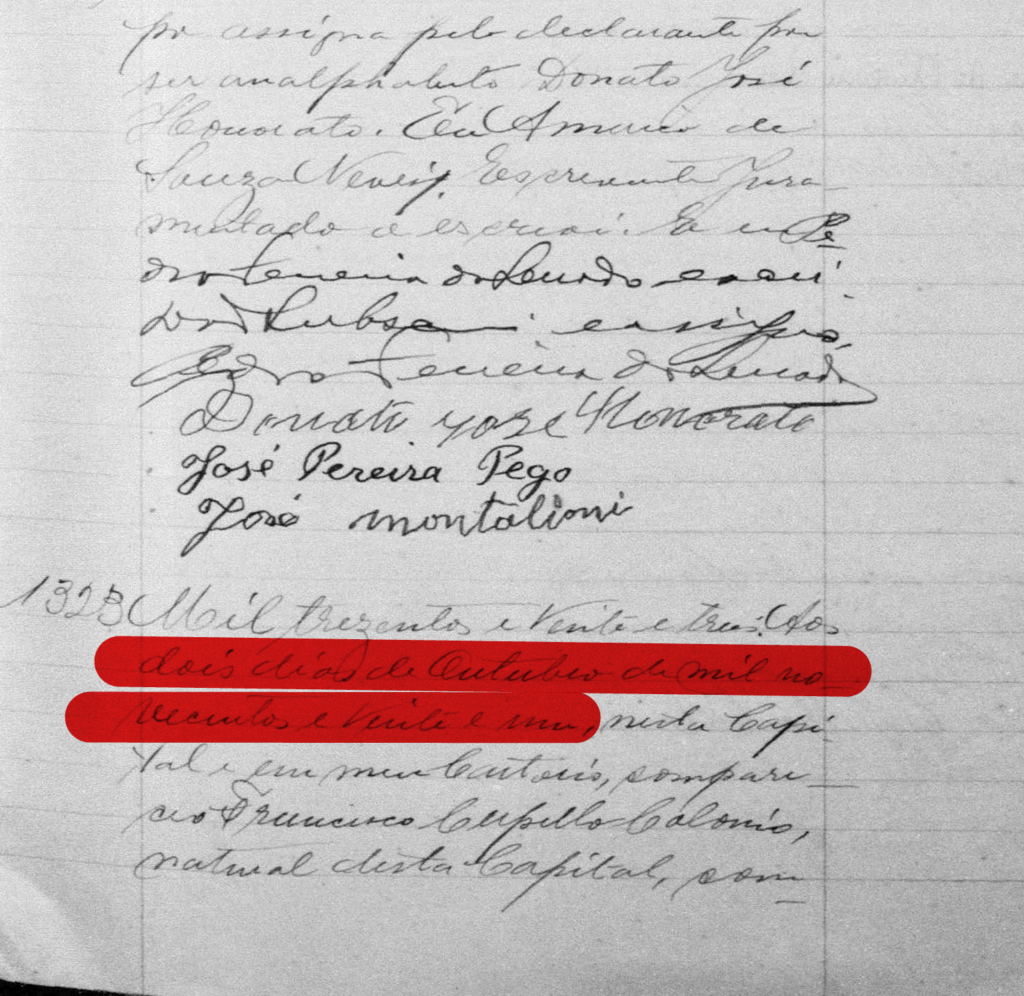 po assigna pelo declarante por
ser analphabeto Donato José
Honorato. Eu Americo de
Souza Neves, Escrevente Jura-
mentado o escrevi. Eu Pe-
dro Ferreira do Serrado escri-
subscrevi e assigno,
Pedro Ferreira do Serrado
Donato yose Honorato
José Pereira Pego
José montalioni
1323 Mil trezentos e Vinte e tres. Aos
dois dias de Outubro de mil no-
vecentos e Vinte e um, nesta Capi-
tal e em meu Cartorio, compare-
ceo Francisco Cupello Colonio,
natural desta Capital, com